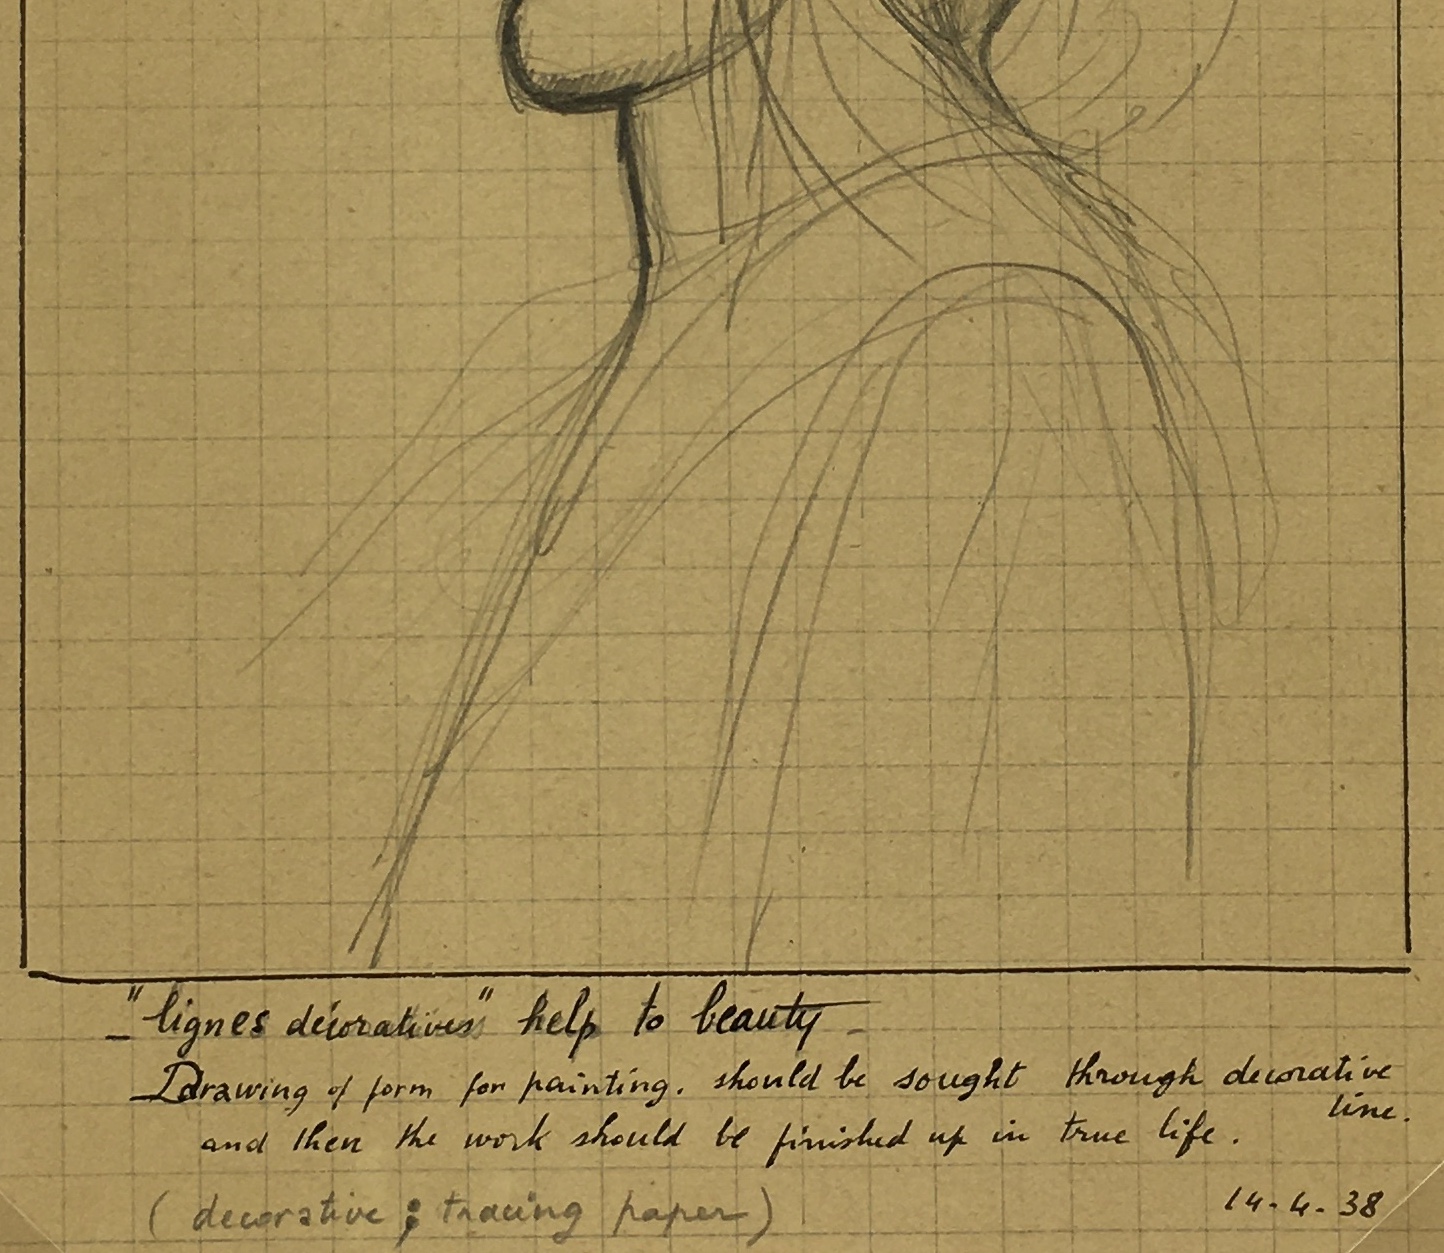 – "lignes décoratives" help to beauty –
Drawing of form for painting. should be sought through decorative
line.
and then the work should be finished up in true life.
( decorative ; tracing paper )
14-4-38